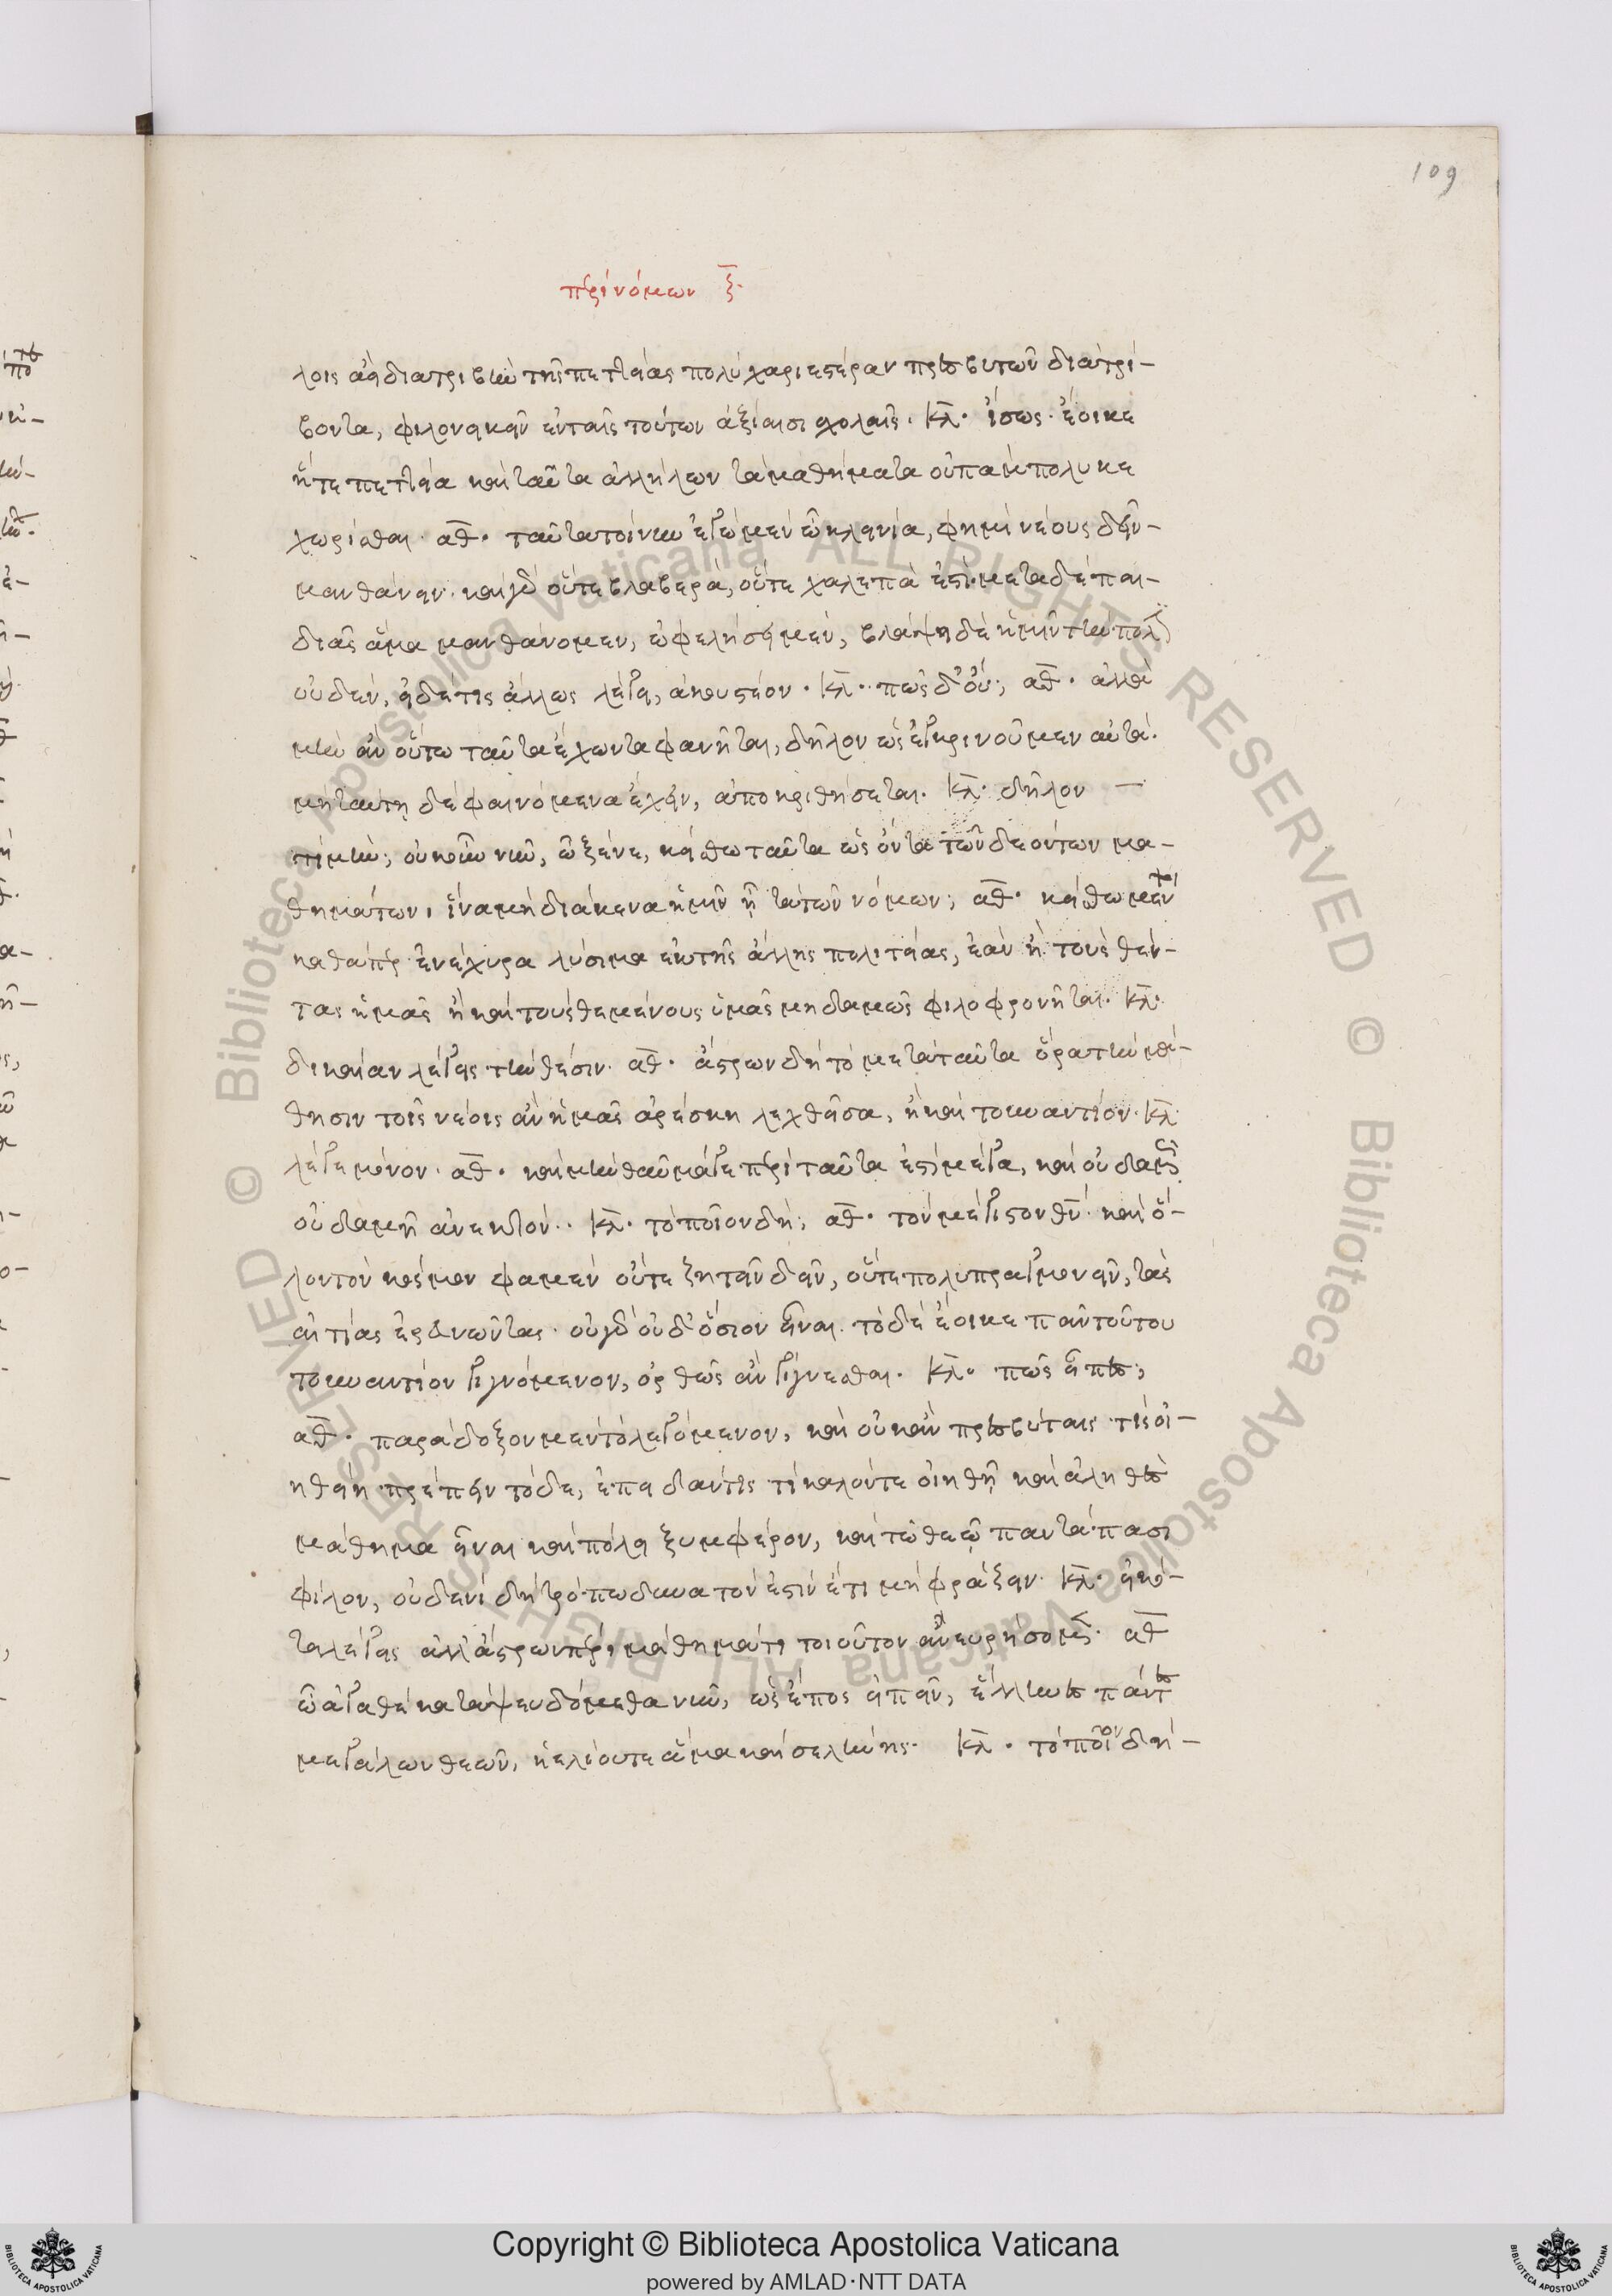 109
περὶ νόμων ζ̄.
λοις ἀεὶ διατριβὴν τῆς πεττείας πολὺ χαριεστέραν πρεσβυτῶν διατρί-
βοντα, φιλονεικεῖν ἐν ταῖς τούτων ἀξίαισι σχολαῖς. κλ. ἴσως. ἔοικε
ἥ τε πεττεία καὶ ταῦτα ἀλλήλων τὰ μαθήματα οὐ πάμπολυ κε
χωρίσθαι. αθ. ταῦτα τοίνυν ἐγὼ μὲν ὦ κλεινία, φημὶ νέους δεῖν-
μανθάνειν. καὶ γὰρ οὔτε βλαβερὰ, οὔτε χαλεπὰ ἐστι. μετὰ δὲ παι-
διᾶς ἅμα μανθάνομεν, ὠφελήσει μὲν, βλάψει δὲ ἡμῖν τὴν πόλιν
οὐδέν, εἰ δέ τις ἄλλως λέγει, ἀκουστέον. κλ. πῶς δ' οὔ; αθ. ἀλλὰ
μὴν ἂν οὕτω ταῦτα ἔχοντα φανῆται, δῆλον ὡς ἐγκρινοῦμεν αὐτά.
μὴ ταύτῃ δὲ φαινόμενα ἔχειν, ἀποκριθήσεται. κλ. δῆλον —
τί μήν; οὐκοῦν νῦν, ὦ ξένε, κείσθω ταῦτα ὡς ὄντα τῶν δεόντων μα-
θημάτων, ἵνα μὴ διάκενα ἡμῖν ᾖ τὰ τῶν νόμων; αθ. κείσθω μέντοι
καθάπερ ἐνέχυρα λύσιμα ἐκ τῆς ἄλλης πολιτείας, ἐὰν ἢ τοὺς θέν-
τας ἡμᾶς ἢ καὶ τοὺς θεμένους ὑμᾶς μηδαμῶς φιλοφρονῆται. κλ.
δικαίαν λέγεις τὴν θέσιν. αθ. ἄστρων δὴ τὸ μετὰ ταῦτα ὅρα τὴν μά-
θησιν τοῖς νέοις ἂν ἡμᾶς ἀρέσκῃ λεχθεῖσα, ἢ καὶ τοὐναντίον. κλ.
λέγε μόνον. αθ. καὶ μὴν θαῦμά γε περὶ ταῦτα ἐστὶ μέγα, καὶ οὐδαμῶς
οὐδαμῇ ἀνεκτόν. κλ. τὸ ποῖον δή; αθ. τὸν μέγιστον θν̄ καὶ ὅ-
λον τὸν κόσμον φαμὲν οὔτε ζητεῖν δεῖν, οὔτε πολυπραγμονεῖν, τὰς
αἰτίας ἐρευνῶντας. οὐ γὰρ οὐδ' ὅσιον εἶναι. τὸ δὲ ἔοικε πᾶν τούτου
τοὐναντίον γιγνόμενον, ὀρθῶς ἂν γίγνεσθαι. κλ. πῶς εἶπες;
αθ. παράδοξον μὲν τὸ λεγόμενον, καὶ οὐκ ἂν πρεσβύταις τὶς οἰ-
ηθείη πρέπειν τόδε, ἐπειδάν τις τὶ καλόν τε οἰηθῇ καὶ ἀληθὲς
μάθημα εἶναι καὶ πόλει ξυμφέρον, καὶ τῷ θεῷ παντάπασι
φίλον, οὐδενὶ δὴ τρόπῳ δυνατόν ἐστιν ἔτι μὴ φράζειν. κλ. εἰκό-
τα λέγεις ἀλλ' ἄστρων πέρι μάθημα τί τοιοῦτον ἀνευρήσομεν. αθ
ὦ ἀγαθὲ καταψευδόμεθα νῦν, ὡς ἔπος εἰπεῖν, ἕλληνες πάντες
μεγάλων θεῶν, ἡλίου τε ἅμα καὶ σελήνης. κλ. τὸ ποῖον δή-
Copyright © Biblioteca Apostolica Vaticana
powered by AMLAD·NTT DATA